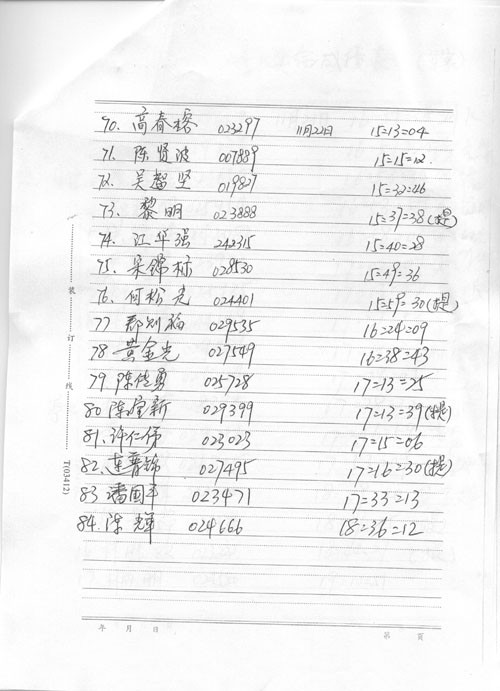 70. 高春榕 023297 11月22日 15=13=04
71. 陈贤波 007889 15=15=12.
72. 吴智坚 019827 15=32=46
73. 黎明 023888 15=37=38(提)
74. 江华强 242315 15=40=28
75. 梁锦标 028530 15=49=36
76. 何松光 024401 15=59=30(提)
77 郑别福 029535 16=24=09
78 黄金光 027549 16=38=43
79 陈传勇 025728 17=13=25
80 陈宝新 029399 17=13=39(提)
81. 许仁伟 023023 17=15=06
82. 027495 17=16=30(提)
83 潘国平 023471 17=33=13
84. 陈辉 024666 18=36=12
装 订 线
T(03412)
年 月 日 第 页